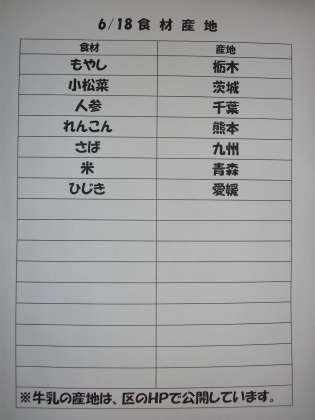 6/18食材産地
食材 産地
もやし 栃木
小松菜 茨城
人参 千葉
れんこん 熊本
さば 九州
米 青森
ひじき 愛媛
※牛乳の産地は、区のHPで公開しています。